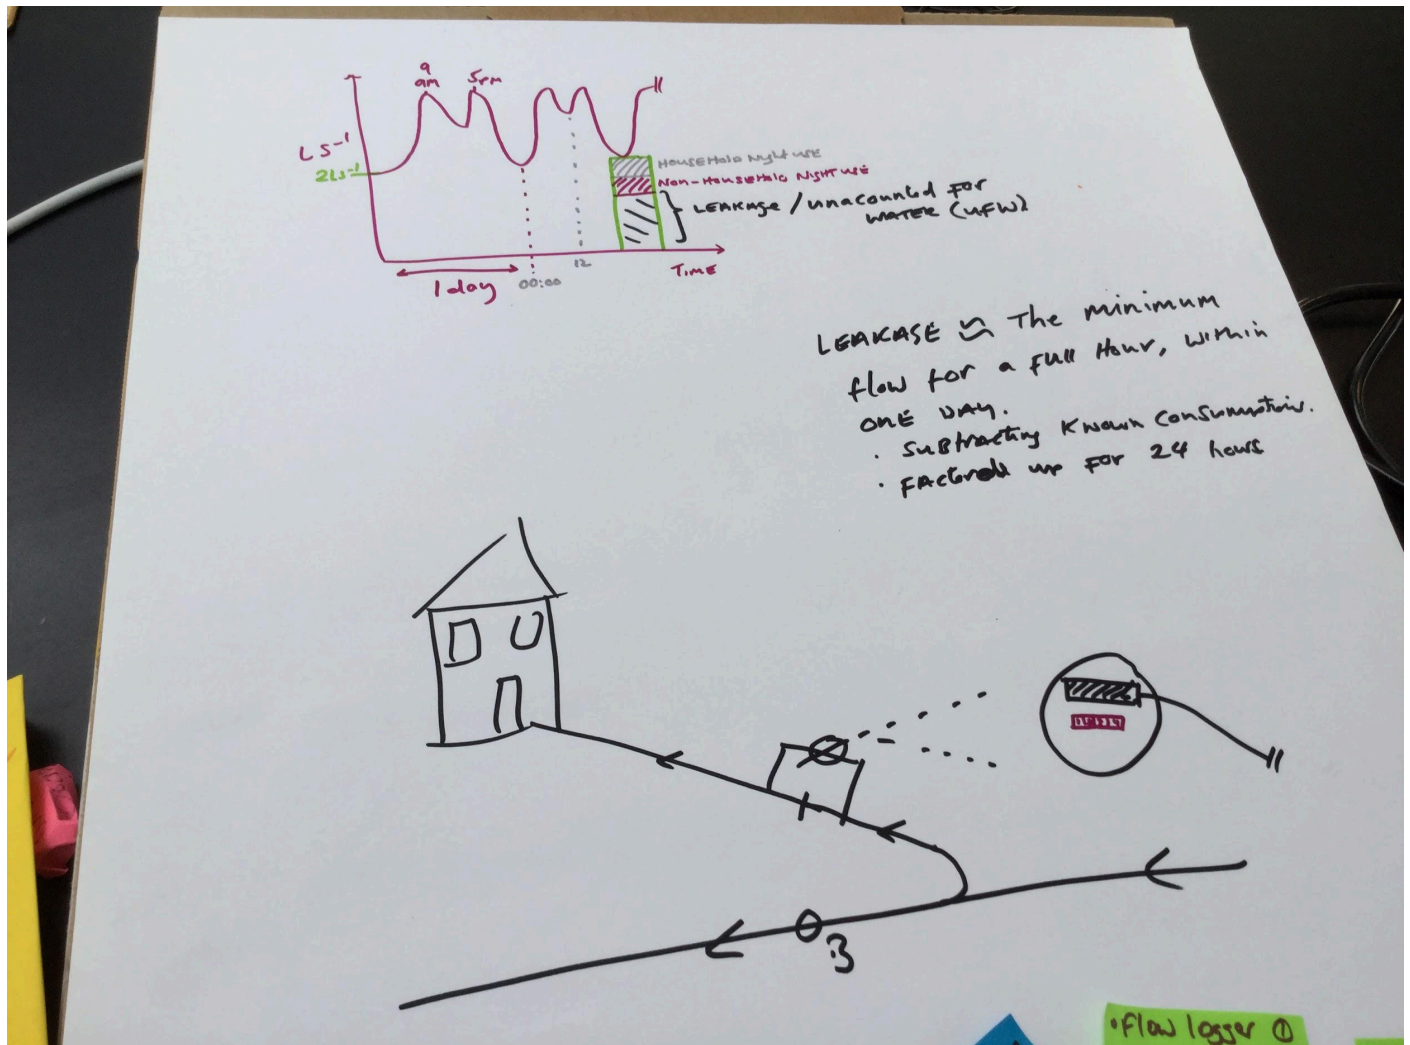 9
am
5pm
L S⁻¹
2LS⁻¹
HouseHold Night use
Non-HouseHold Night use
LEAKAGE / unacounted for
WATER (UFW)
TIME
12
00:00
1 day
LEAKAGE ≈ The minimum
flow for a full Hour, within
ONE DAY.
· Subtracting Known Consumption.
· FACTORED up FOR 24 hours
B
·Flow logger ①